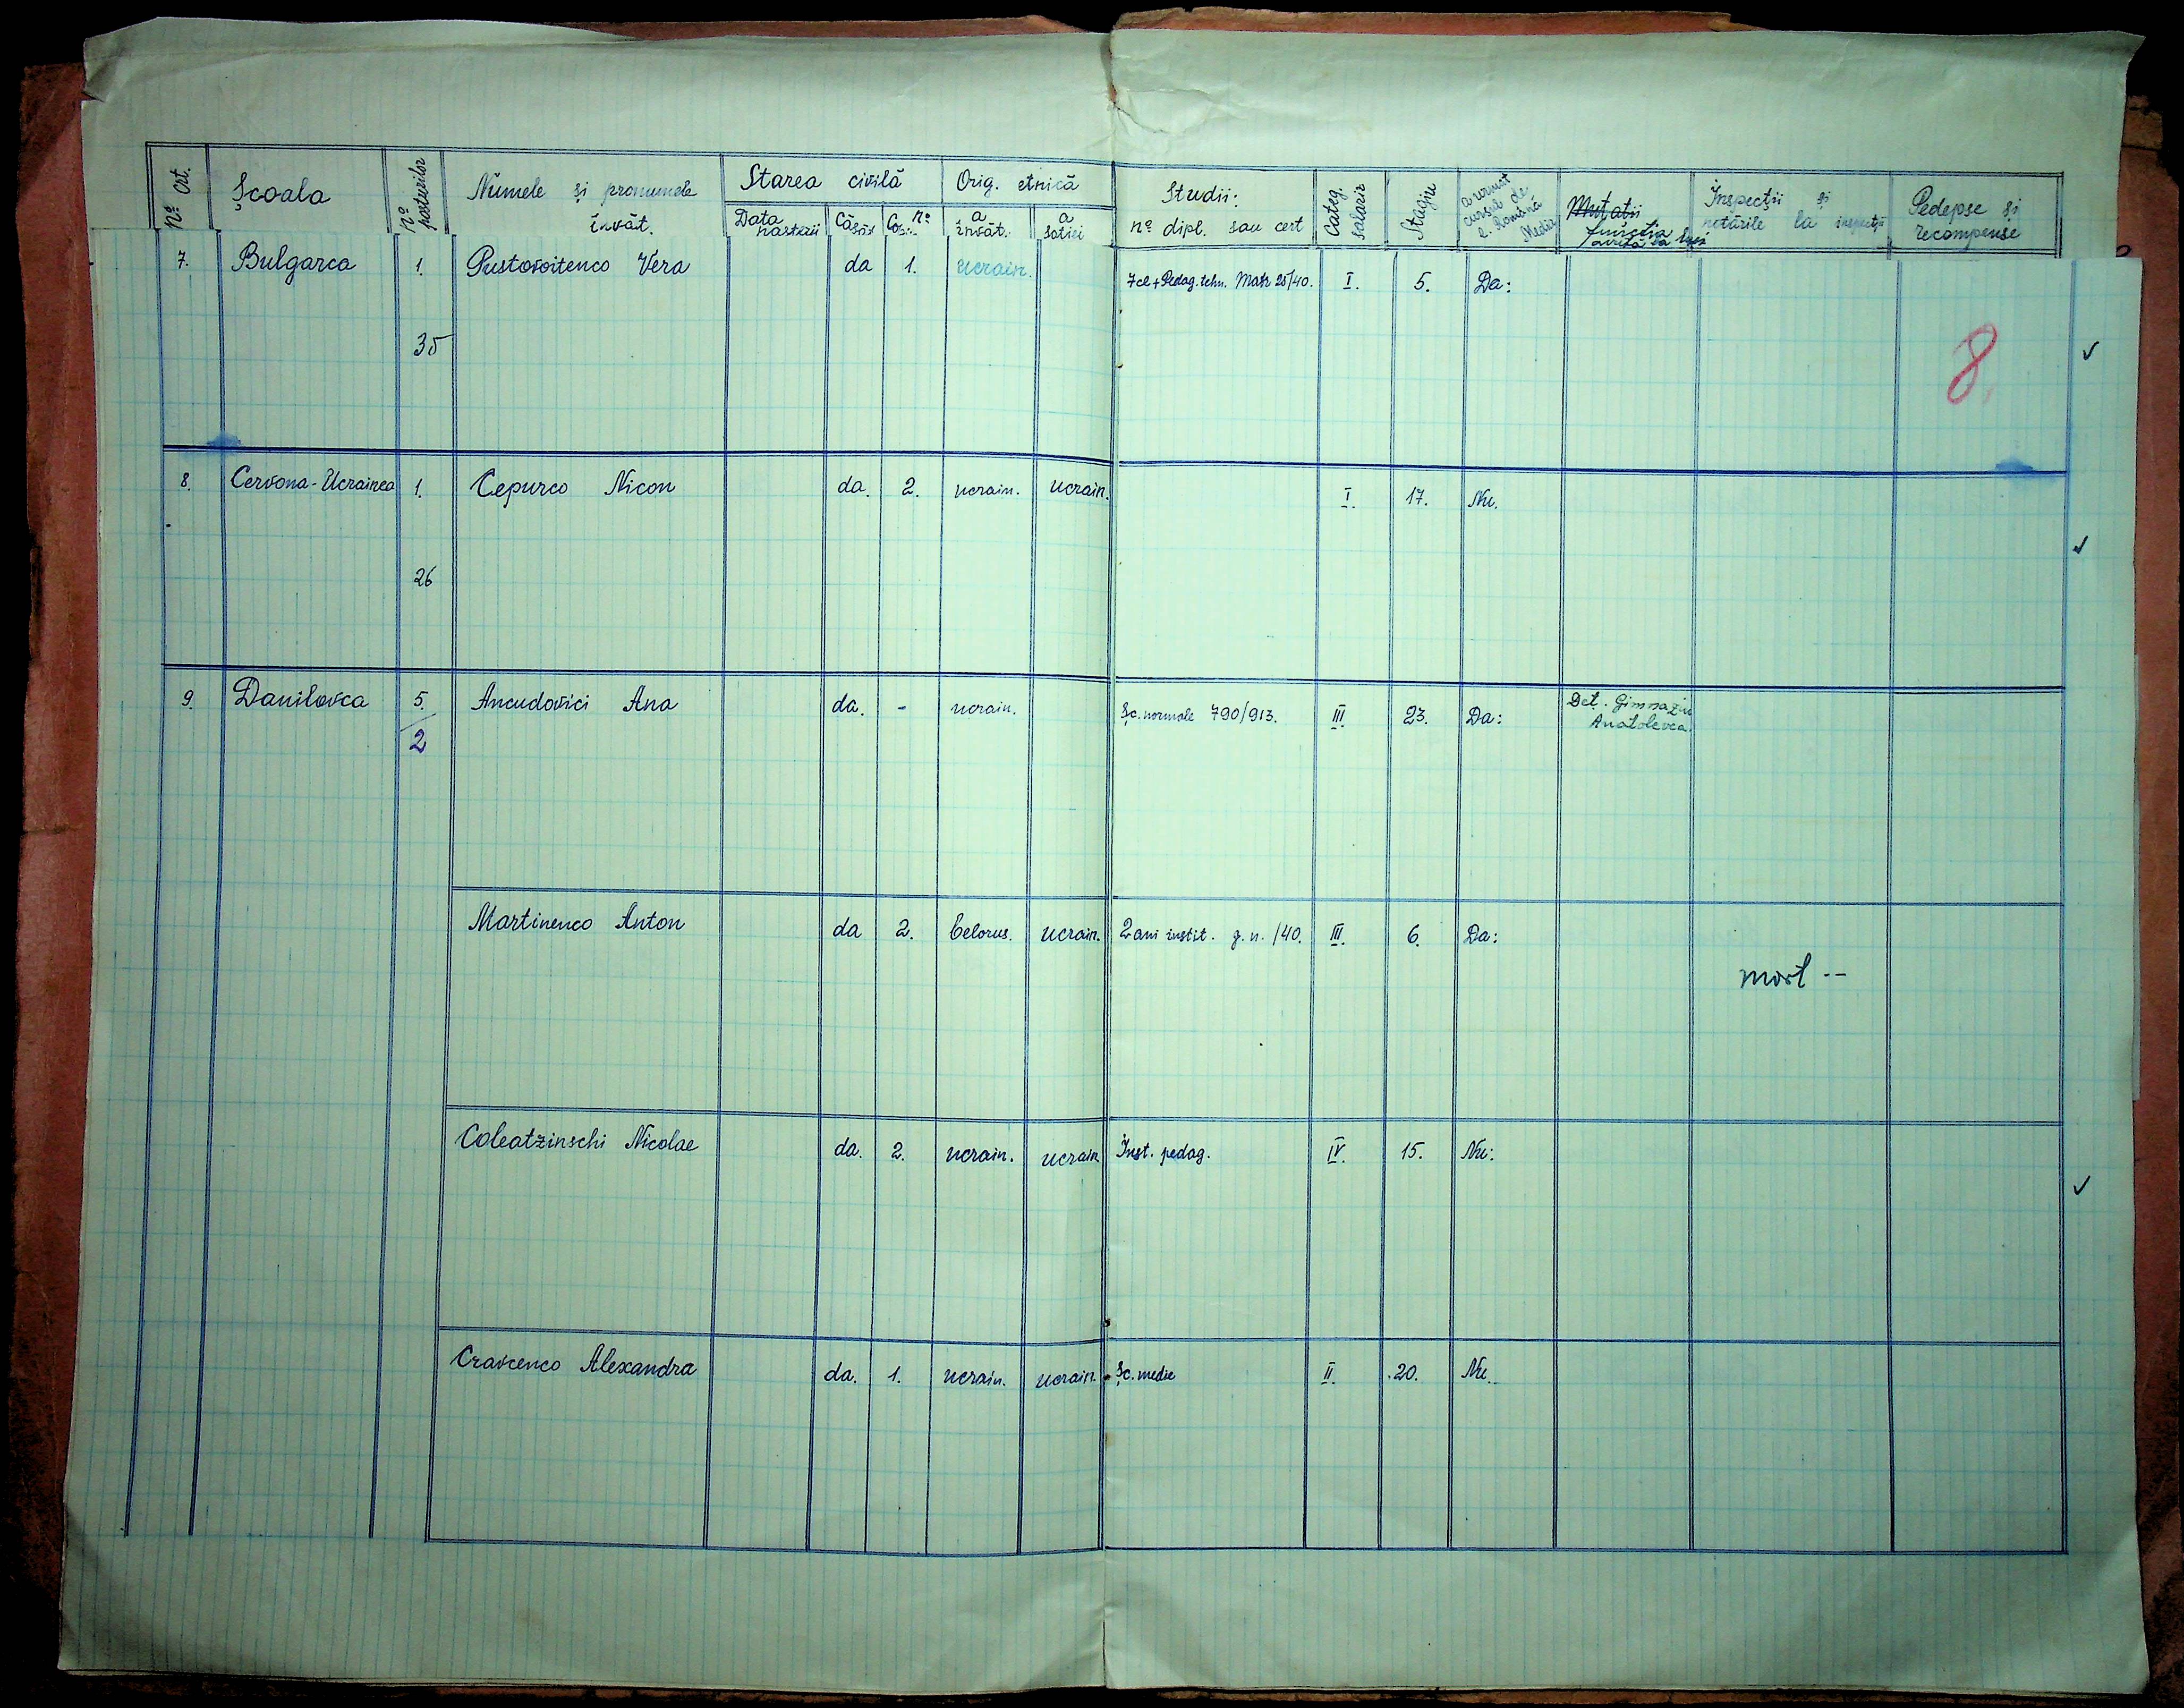 Nº crt.
Școala
Nº posturilor
Numele și pronumele
învăț.
Starea civilă
Data nasterii
Căsăt
Nº
Orig. etnică
a învăț.
a soției
Studii:
nº dipl. sau cert
Categ. salariz
Stagiu
a urmat cursul de l. Română
Mutații
funcția
Inspecții și
notările la inspecții
Pedepse și
recompense
7. Bulgarca 1. Pustovoitenco Vera da 1. ucrain. 7cl+Pedag. tehn. Matr 25/40. I. 5. Da:
35
8.
8. Cervona-Ucrainea 1. Cepurco Nicon da. 2. ucrain. ucrain. I. 17. Nu.
26
9. Danilovca 5. Ancudovici Ana da. - ucrain. Șc. normale 790/913. III. 23. Da: Det. Gimnaziu
2 Anatolevca.
Martinenco Anton da 2. belorus. ucrain. 2 ani instit. g. n. /40. III. 6. Da:
mort --
Coleatzinschi Nicolae da. 2. ucrain. ucrain Inst. pedag. IV. 15. Nu:
Cravcenco Alexandra da. 1. ucrain. ucrain. Șc. medie II. 20. Nu.